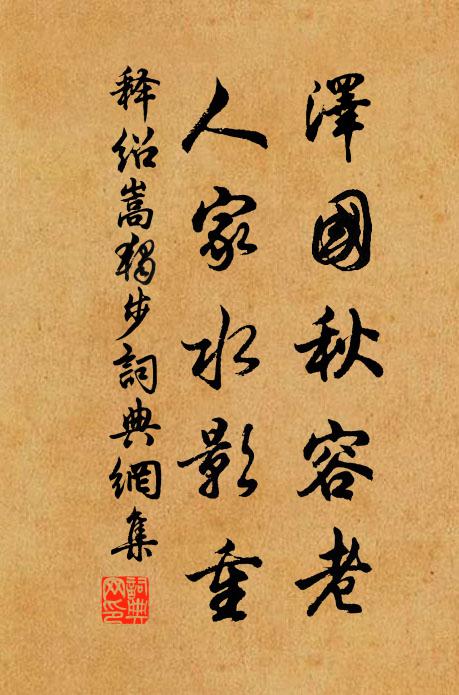 澤國秋容老
人家水影重
释绍嵩獨步詞典網集
詞典网印